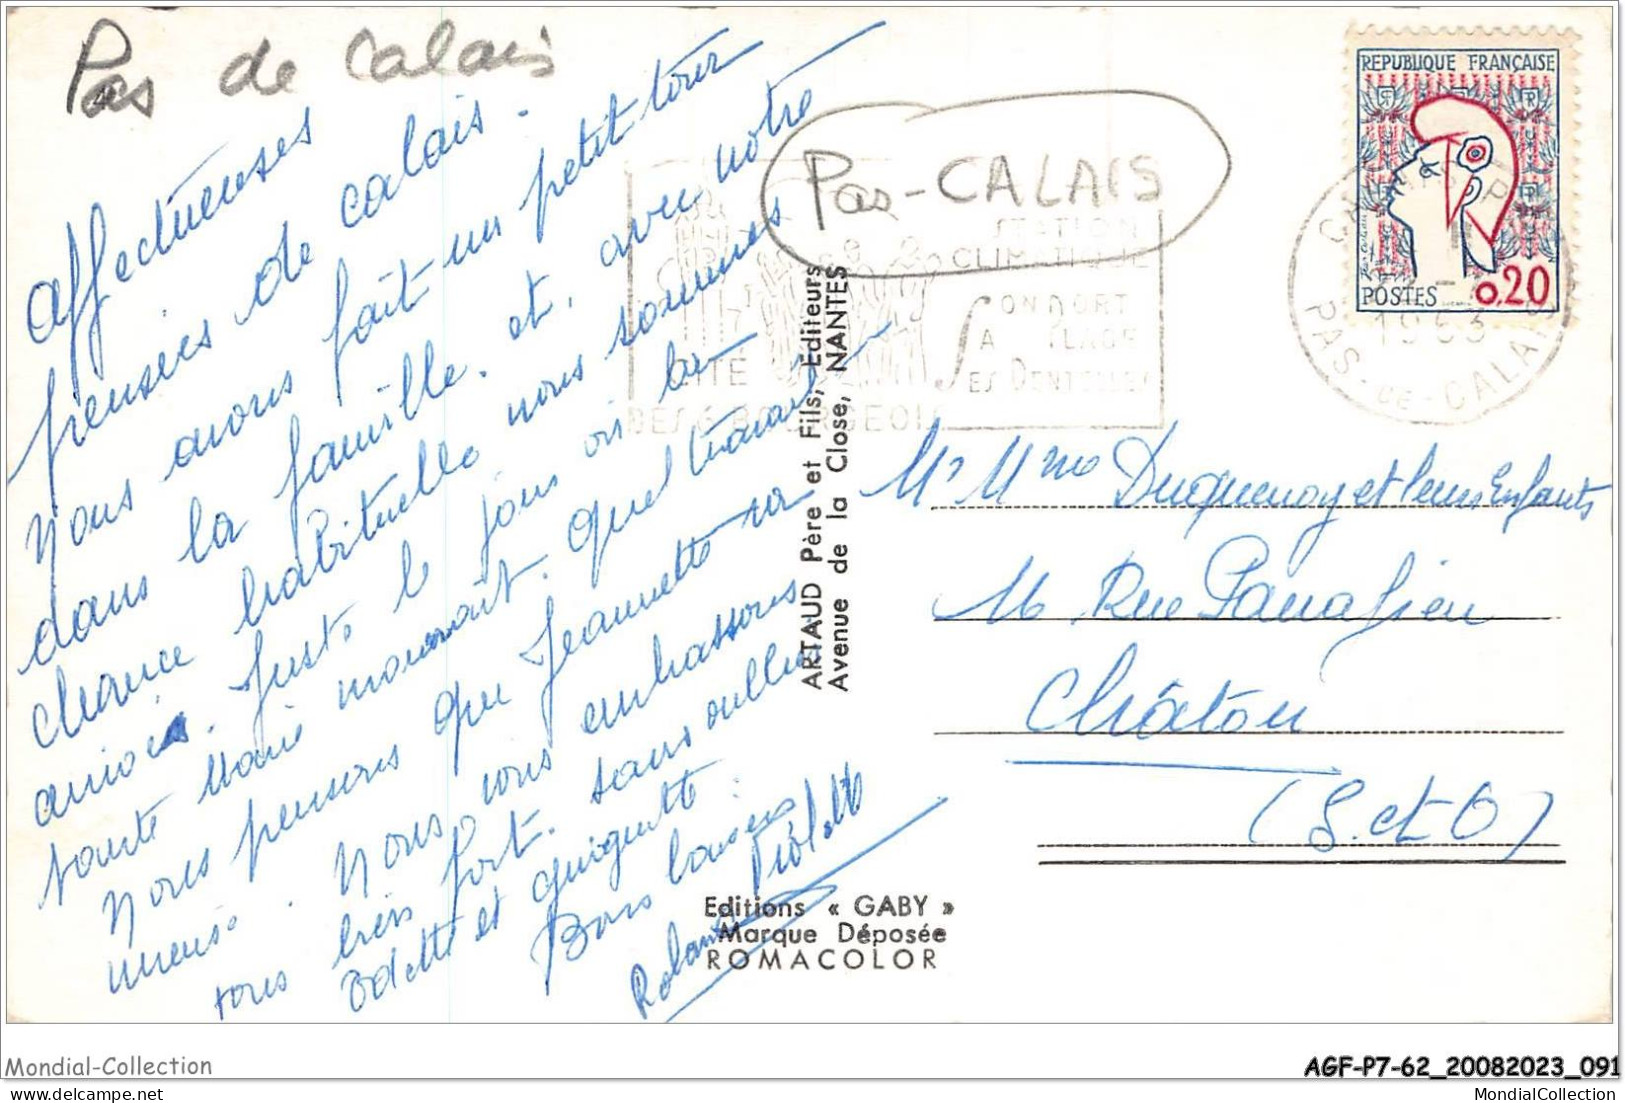 Pas de Calais
affectueuses
pensées de calais.
Nous avons fait un petit tour
dans la famille. et, avec notre
chance habituelle nous sommes
arrivés. Juste le jour où la
tante Marie mourait. quel travail
Nous pensons que Jeannette va
mieux. Nous vous embrassons
tous bien fort. sans oublier
Odette et Guiguitte.
Bons baisers
Violette
Roland
Pas-CALAIS
STATION
CLIMATIQUE
CITÉ
DES 6 BOURGEOIS
SON PORT
SA PLAGE
SES DENTELLES
REPUBLIQUE FRANÇAISE
POSTES 0,20
1963
PAS-DE-CALAIS
ARTAUD Père et Fils, Editeurs
Avenue de la Close, NANTES
Mr Mme Duquenoy et leurs Enfants
Rue
Châtou
(S. et O)
Editions « GABY »
Marque Déposée
ROMACOLOR
Mondial-Collection
AGF-P7-62_20082023_091
delcampe.net
MondialCollection